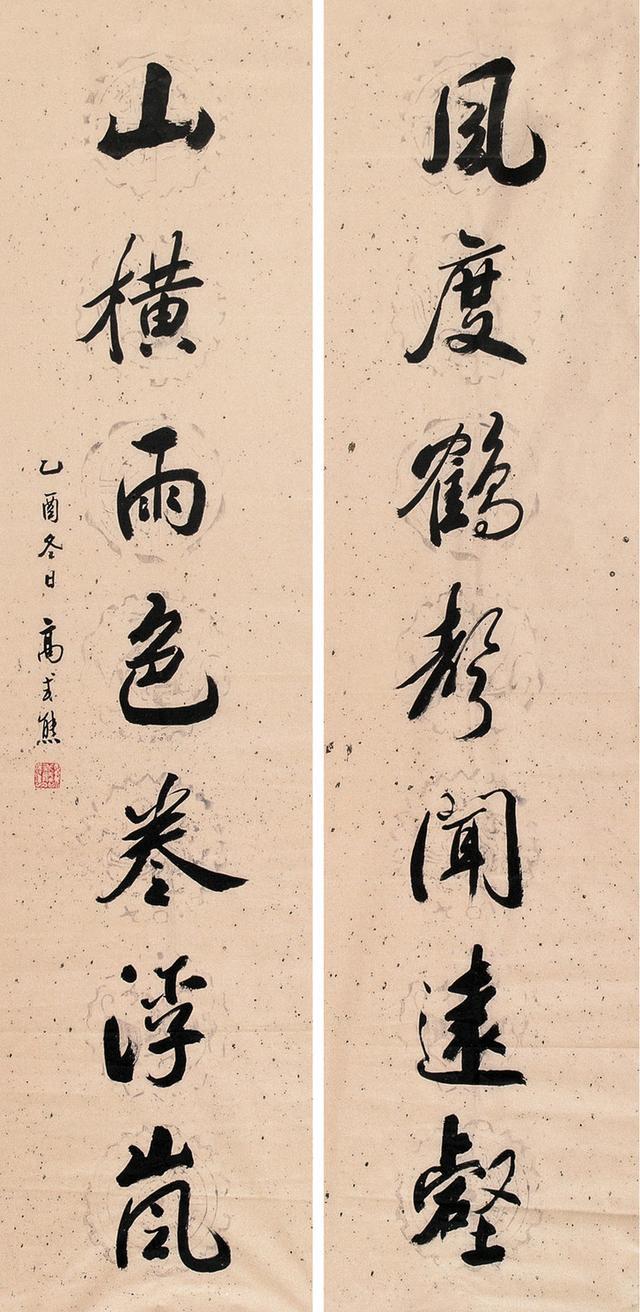 風度鶴聲聞遠壑
山橫雨色卷浮嵐
乙酉冬日高式熊